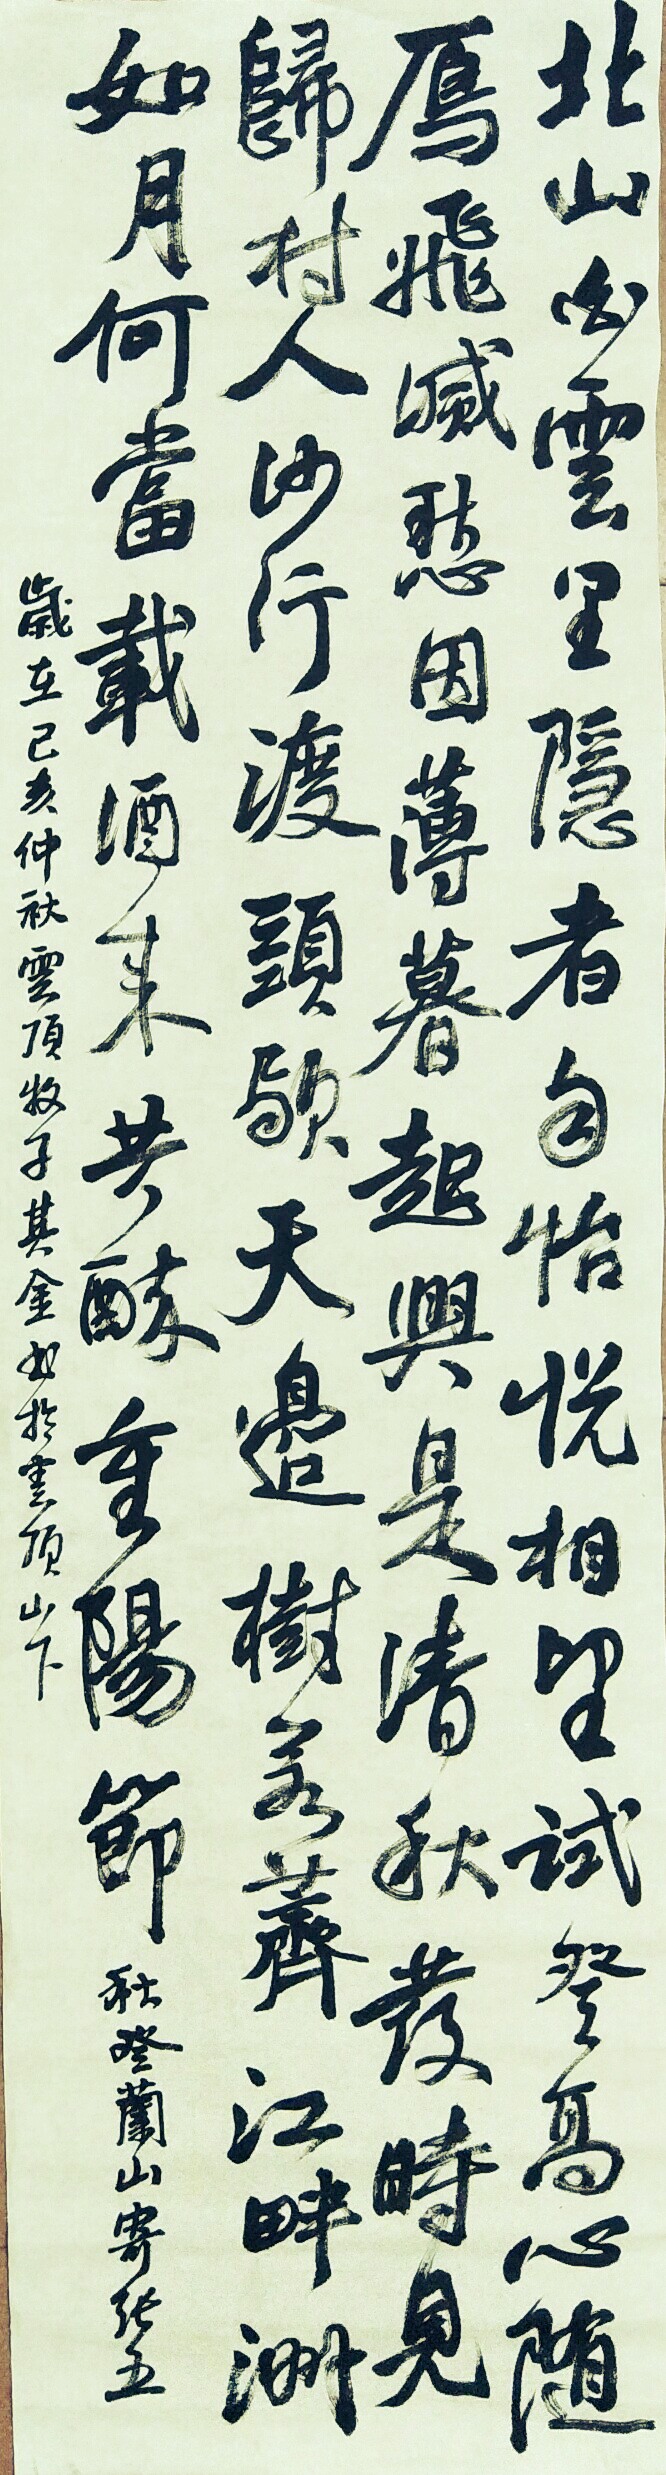 北山白雲里隱者自怡悅相望試登高心随
雁飛滅愁因薄暮起興是清秋發時見
歸村人沙行渡頭歇天邊樹若薺江畔洲
如月何當載酒来共醉重陽節
秋登蘭山寄張五
歲在己亥仲秋雲頂牧子其金书於雲頂山下